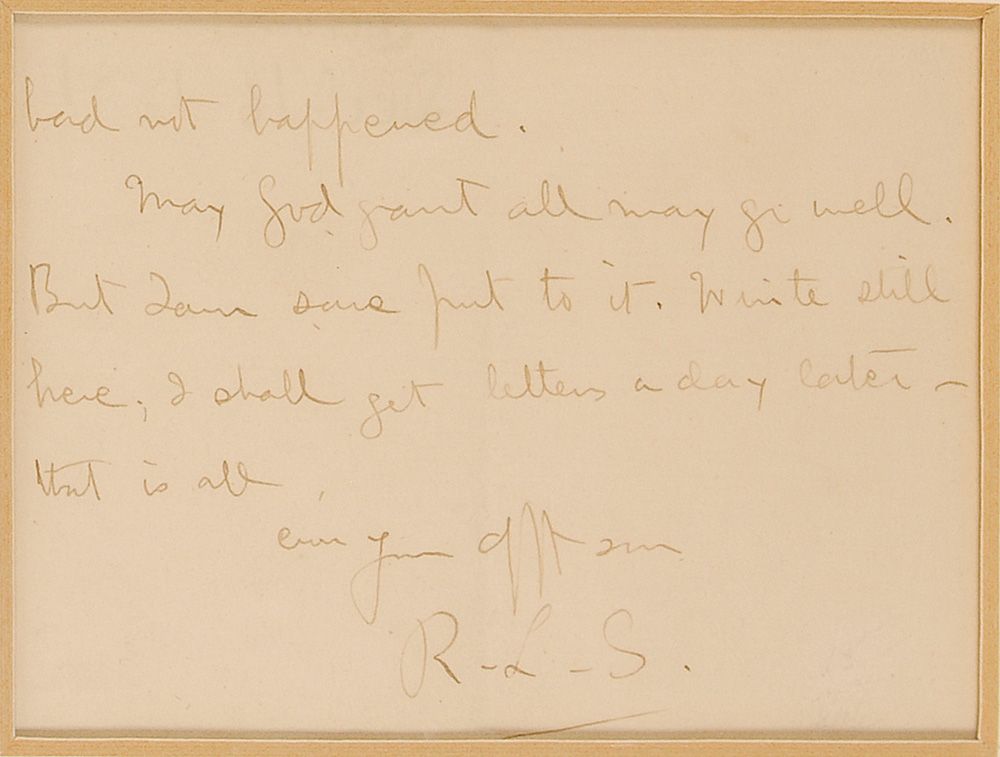 had not happened.
May God grant all may go well.
But I am sore put to it. Write still
here; I shall get letters a day later –
that is all.
ever your afft son
R-L-S.